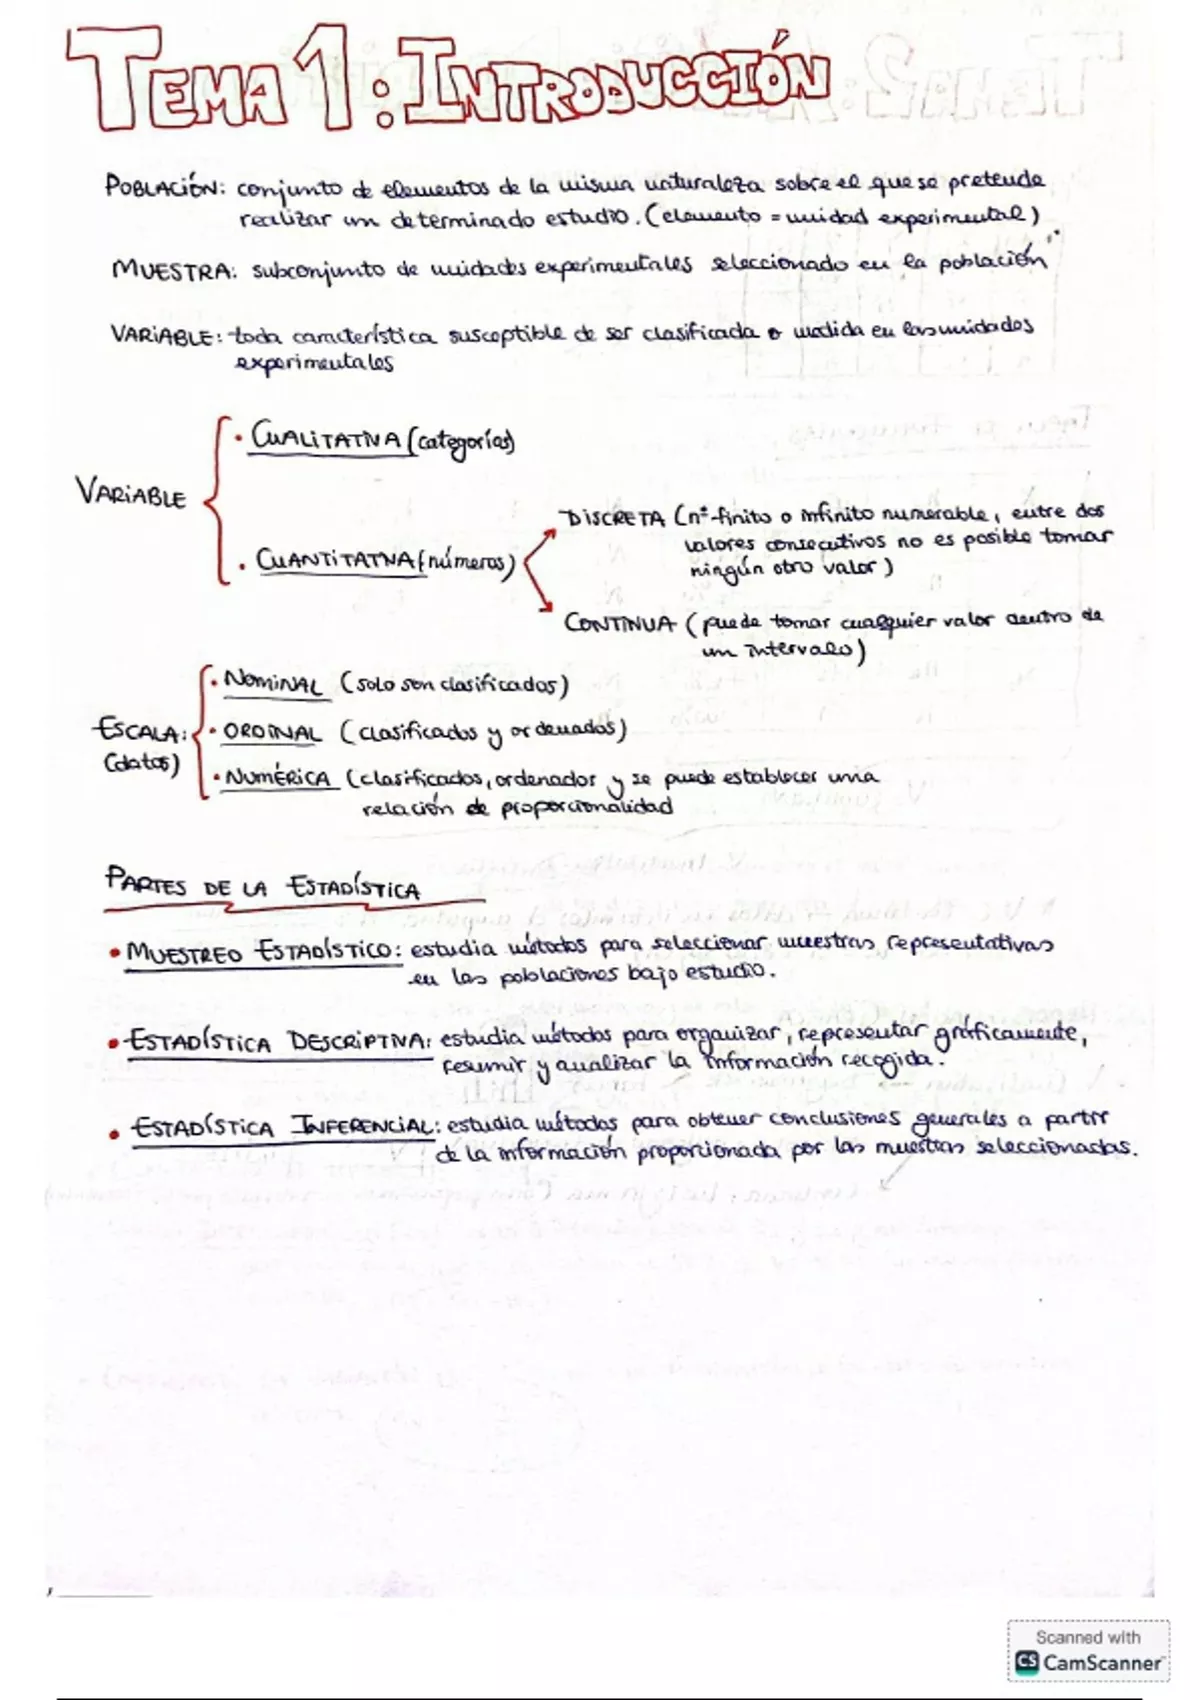 TEMA 1: INTRODUCCIÓN
POBLACIÓN: conjunto de elementos de la misma naturaleza sobre el que se pretende
realizar un determinado estudio. (elemento = unidad experimental)
MUESTRA: subconjunto de unidades experimentales seleccionado en la población
VARIABLE: toda característica susceptible de ser clasificada o medida en las unidades
experimentales
VARIABLE
• CUALITATIVA (categorías)
• CUANTITATIVA (números)
DISCRETA (nº finito o infinito numerable, entre dos
valores consecutivos no es posible tomar
ningún otro valor)
CONTINUA (puede tomar cualquier valor dentro de
un intervalo)
ESCALA:
(datos)
• NOMINAL (solo son clasificados)
• ORDINAL (clasificados y ordenados)
• NUMÉRICA (clasificados, ordenador y se puede establecer una
relación de proporcionalidad
PARTES DE LA ESTADÍSTICA
• MUESTREO ESTADÍSTICO: estudia métodos para seleccionar muestras representativas
en las poblaciones bajo estudio.
• ESTADÍSTICA DESCRIPTIVA: estudia métodos para organizar, representar gráficamente,
resumir y analizar la información recogida.
• ESTADÍSTICA INFERENCIAL: estudia métodos para obtener conclusiones generales a partir
de la información proporcionada por las muestras seleccionadas.
Scanned with
CS CamScanner